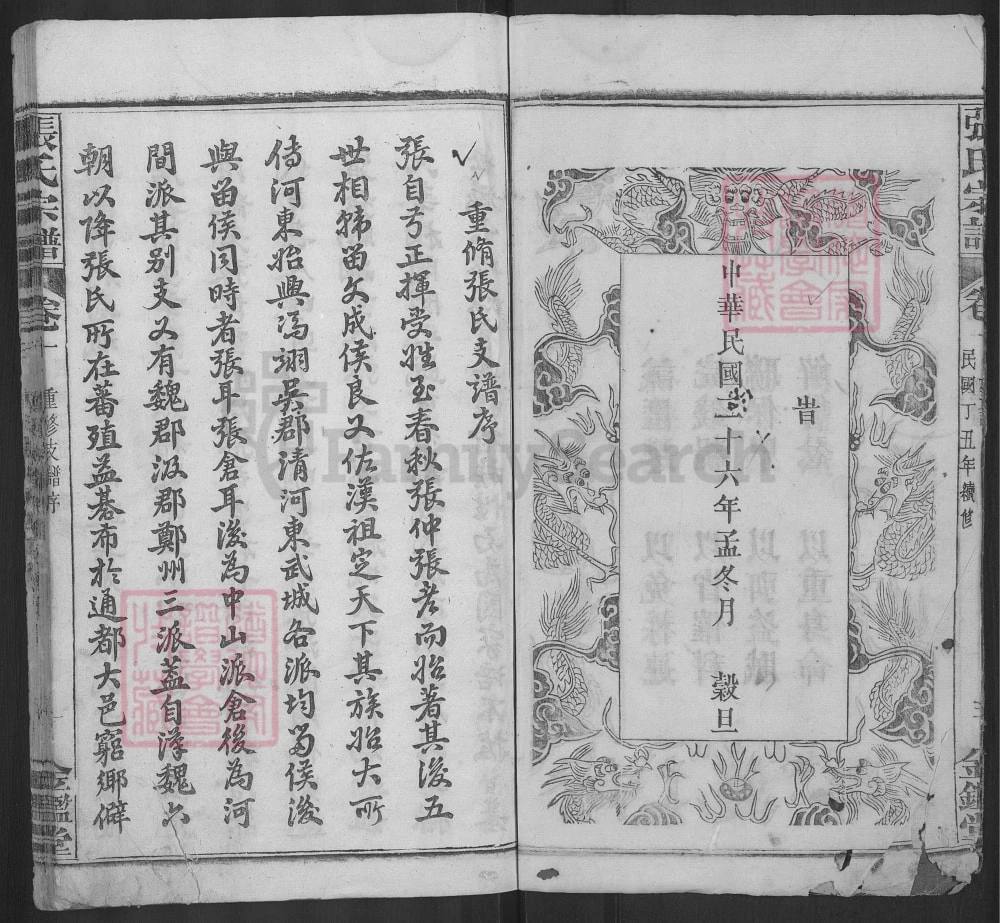 張氏宗譜
卷一
民國丁丑年續修
金鑑堂
旹
中華民國二十六年孟冬月 穀旦
重脩張氏支譜序
張自弓正揮受姓至春秋張仲張老而始著其後五
世相韓留文成侯良又佐漢祖定天下其族始大所
傳河東始興馮翊吳郡清河東武城各派均留侯後
與留侯同時者張耳張倉耳後為中山派倉後為河
間派其別支又有魏郡汲郡鄭州三派蓋自漢魏六
朝以降張氏所在蕃殖益棊布於通都大邑窮鄉僻
張氏宗譜
卷一
重修支譜序
一
金鑑堂
FamilySearch